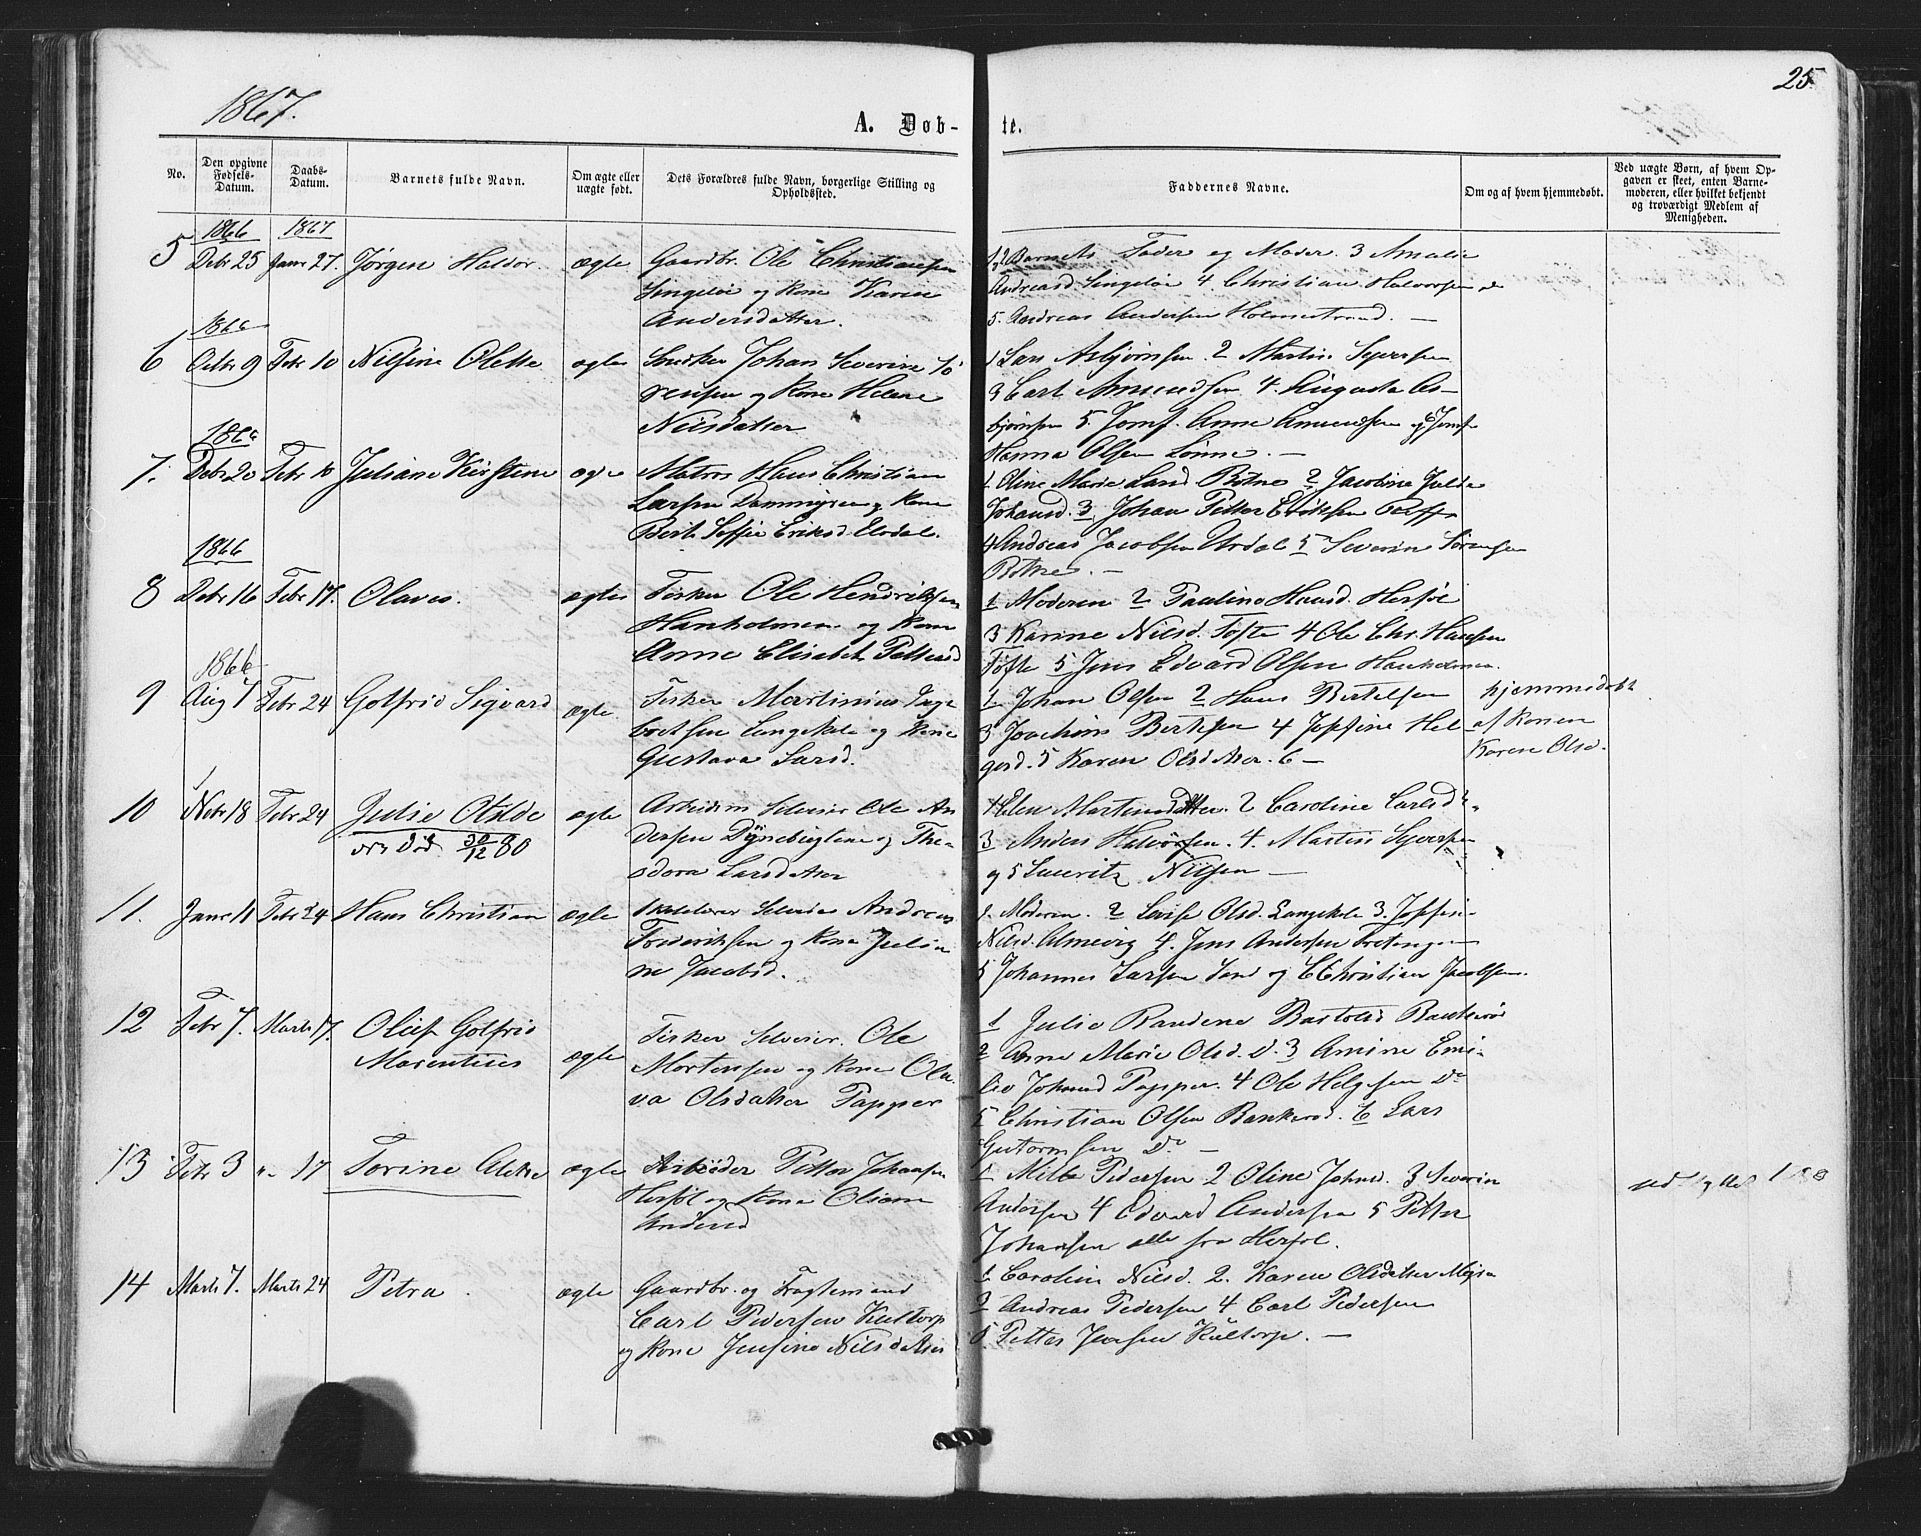 25
1867.
A. Døb-
te.
No.
Den opgivne Fødsels-Datum.
Daabs-Datum.
Barnets fulde Navn.
Om ægte eller uægte født.
Dets Forældres fulde Navn, borgerlige Stilling og Opholdssted.
Faddernes Navne.
Om og af hvem hjemmedøbt.
Ved uægte Børn, af hvem Op-
gaven er skeet, enten Barne-
moderen, eller hvilket bekjendt
og troværdigt Medlem af
Menigheden.
1866 1867
5 Debr 25 Janr 27. Jørgen Haldor. ægte Gaardbr. Ole Christiansen
Singeløe og Kone Karen
Andersdatter.
1 2 Barnets Fader og Moder. 3 Amalie
Andreasd Singeløe 4 Christian Halvorsen do
5. Andreas Andersen Holmestrand. —
1866
6 Octbr 9 Febr 10 Nilsine Olette ægte Snedker Johan Severin Sö
rensen og Kone Helene
Nilsdatter
1 Lars Asbjørnsen. 2 Martin Syversen
3 Carl Amundsen 4. Augusta As-
bjørnsen 5. Jomf. Anne Amundsen og Jomf
Hanna Olsen Lønne. —
1866
7. Debr 20 Febr 10 Juliane Kirstine ægte Matros Hans Christian
Larsen Dammyren og Kone
Berth Soffie Eriksd.
1 Oline Marie Larsd Botne 2 Jacobine Julde
Johansd. 3 Johan Petter Eriksen
4 Andreas Jacobsen 5 Severin Sørensen
Botne. —
1866
8 Debr 16 Febr 17. Olaves. ægte Fisker Ole Hendriksen
Hankholmen og Kone
Anne Elisabet Pettersd
1 Moderen 2 Pauline Hansd. Herføl
3 Karine Nilsd. Tofte 4 Ole Chr. Hansen
Tofte 5 Jens Edvard Olsen Hankholmen.
1866
9 Aug 7 Febr 24 Golfrid Sigvard ægte. Fisker Martinius Inge
bretsen Langekile og Kone
Gustava Larsd.
1. Johan Olsen 2 Hans Bertelsen
3 Joachim Bertelsen 4 Jossine Hel
gesd. 5 Karen Olsdatter. 6 —
hjemmedøbt
af Konen
Karen Olsd.
10 Nobr 18 Febr 24 Julie Otilde ægte Arbeidsm Selveier Ole An
dersen Dÿnebugtene og The-
odora Larsdatter
død 30/12 80
1 Elen Martinsdatter. 2 Caroline Carlsd
3 Anders Halvorsen. 4. Martin Syversen
og 5 Lauritz Nilsen —
11. Janr 11 Febr 24 Hans Christian ægte Selveier Andreas
Frederiksen og Kone Julia
ne Jacobsd.
1. Moderen. 2 Lovise Olsd. Langekile 3. Jossine
Nilsd. Almevig 4. Jens Andersen
5 Johannes Larsen Sand og 6 Christian Jacobsen.
12 Febr 7. Marts 17. Oluf Golfrid
Marentius
ægte Fisker Selveier. Ole
Mortensen og Kone Oli
va Olsdatter Papper
1 Julie Bartolsd Bankerød
2 Anne Marie Olsd. Do. 3 Amine Emi-
lie Johnsd Papper. 4 Ole Helgesen Do
5 Christian Olsen Bankerød. 6 Lars
Gutormsen Do —
13 Febr 3 "- 17 Torine Alette ægte Arbeider Petter Johansen
Herføl og Kone Oliane
Andersd
1 Petersen 2 Oline Johnsd. 3 Severin
Andersen 4 Edvard Andersen 5 Petter
Johansen alle fra Herføl.
14 Marts 7. Marts 24 Petra. ægte Gaardbr. og Fragtemand
Carl Pedersen Kultorp
og Kone Jensine Nilsdatter
1 Caroline Nilsd. 2. Karen Olsdatter
3 Andreas Pedersen 4 Carl Pedersen
5 Petter Jensen Kultorp. —